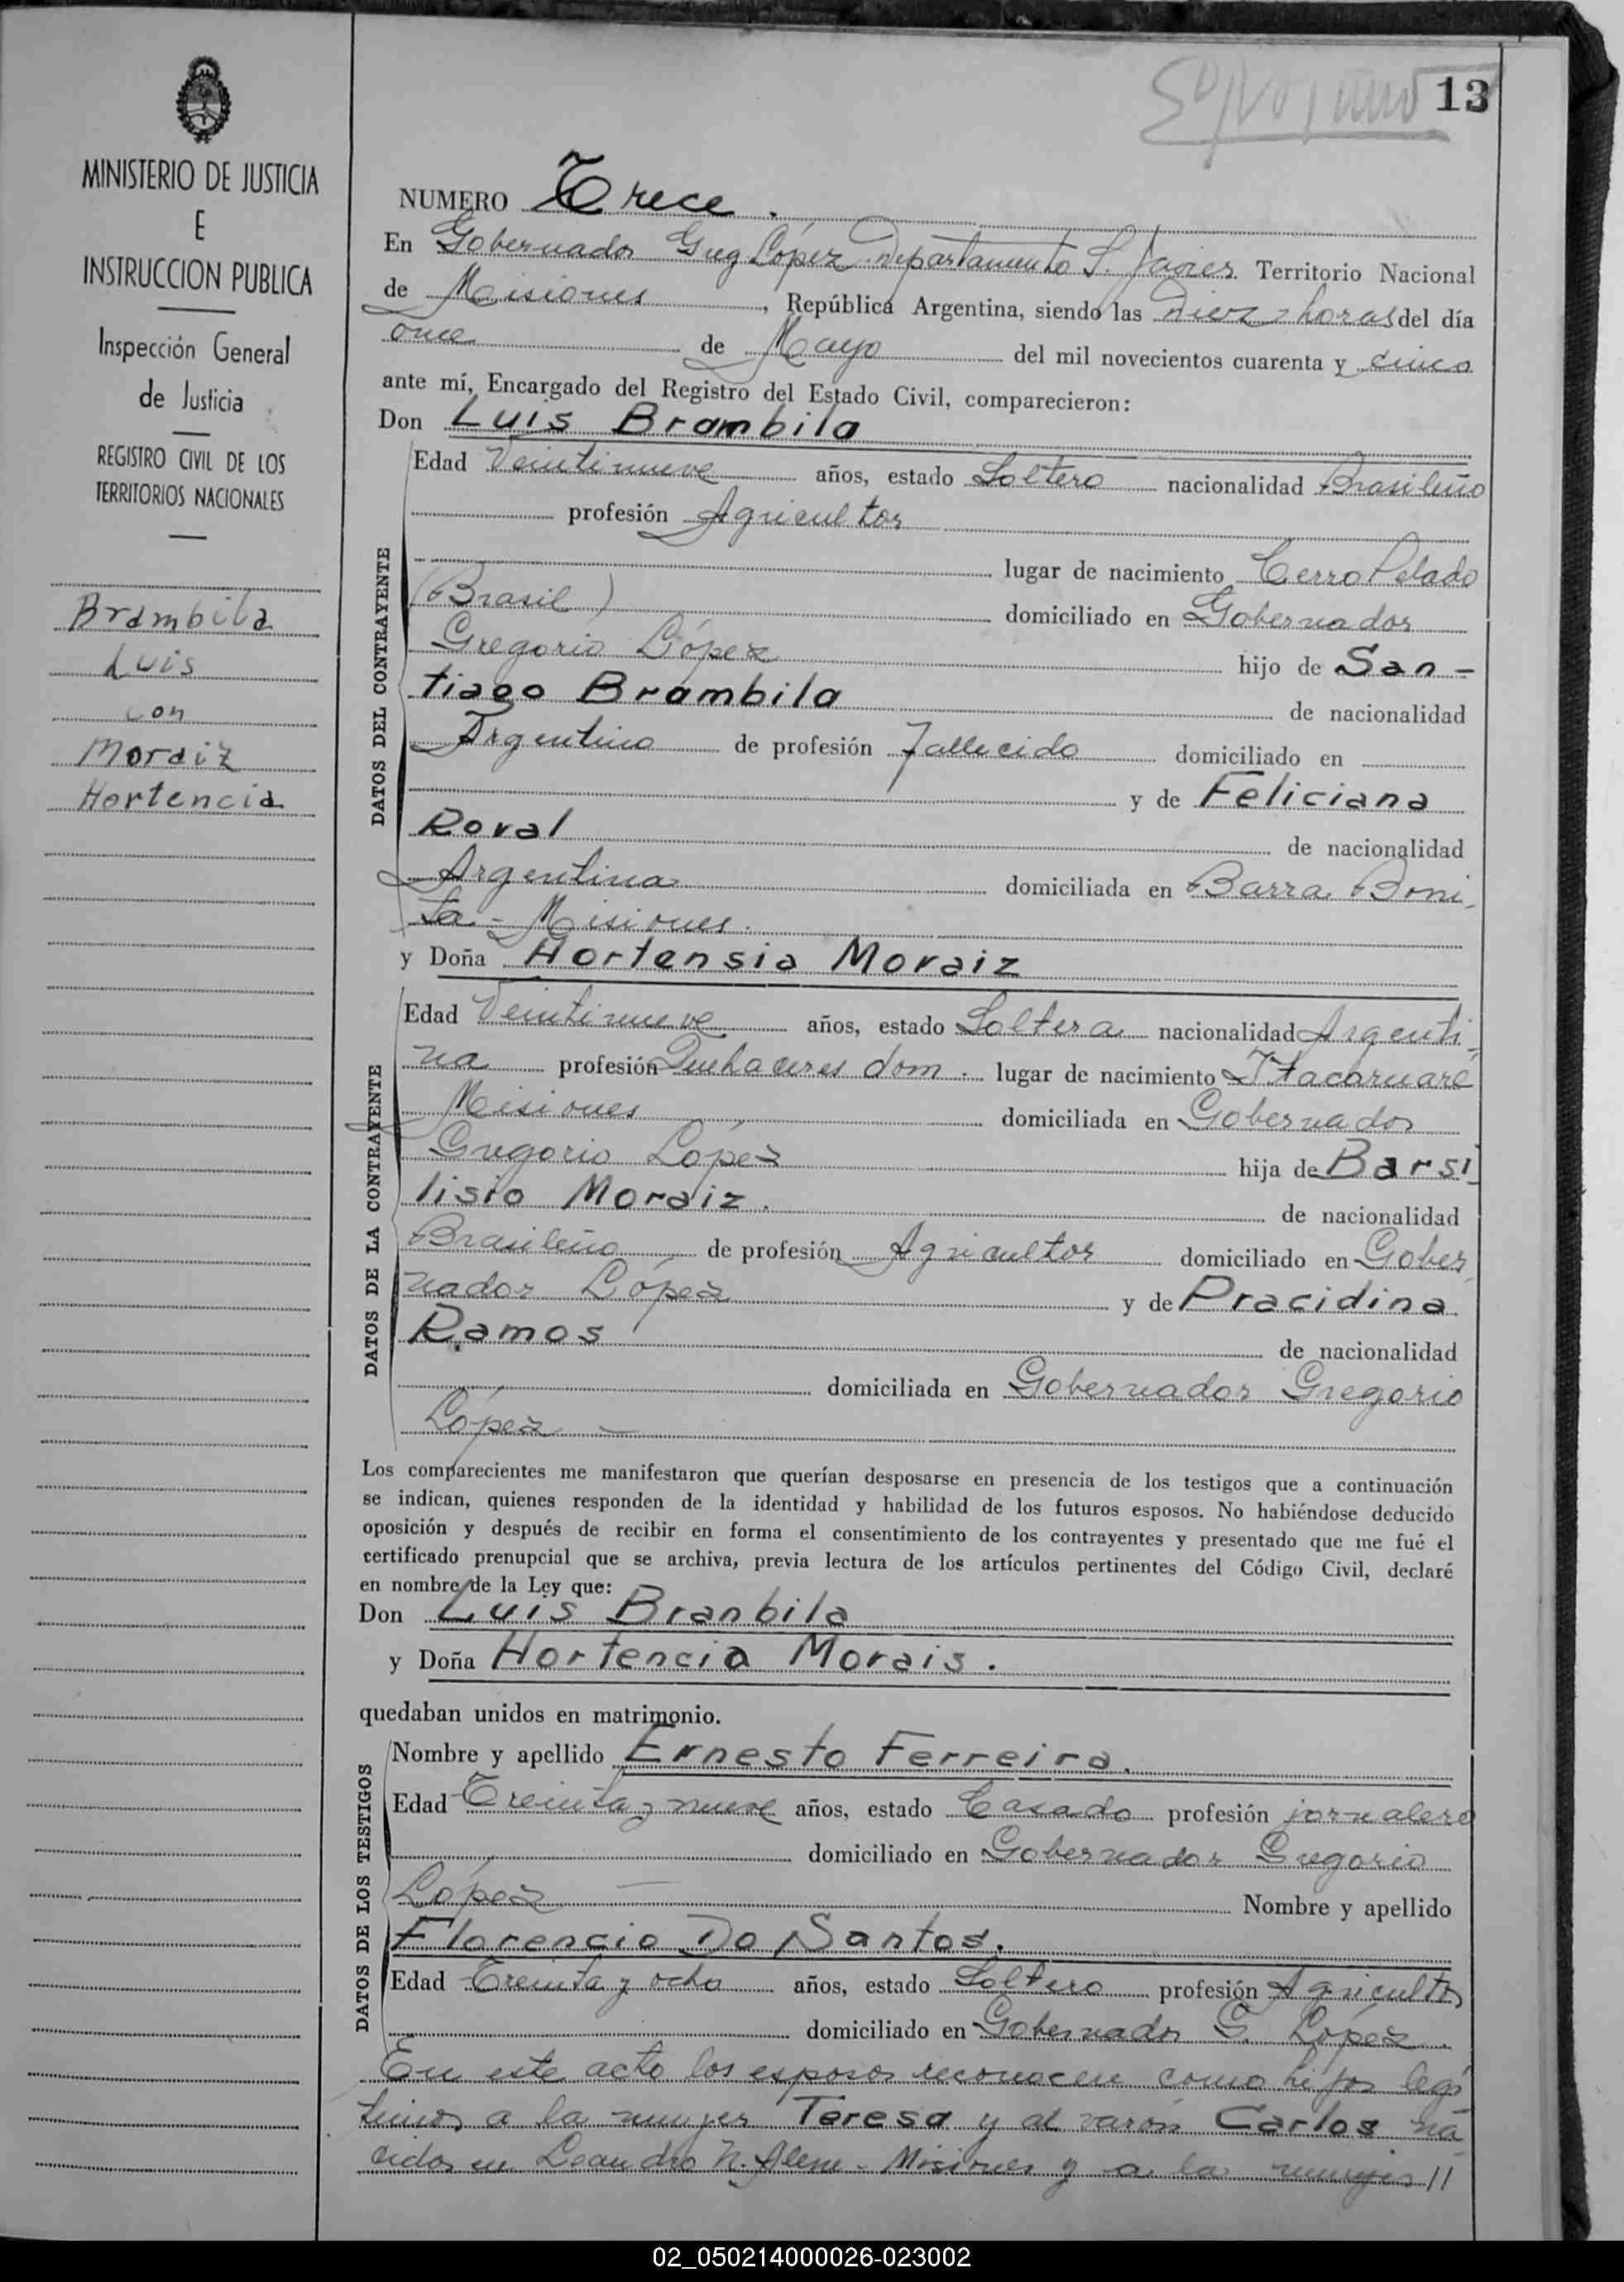 13
MINISTERIO DE JUSTICIA
E
INSTRUCCION PUBLICA
Inspección General
de Justicia
REGISTRO CIVIL DE LOS
TERRITORIOS NACIONALES
Brambila
Luis
con
Moraiz
Hortencia
NUMERO Trece.
En Gobernador Greg. López Departamento S. Javier Territorio Nacional
de Misiones, República Argentina, siendo las Diez horas del día
once de Mayo del mil novecientos cuarenta y cinco
ante mí, Encargado del Registro del Estado Civil, comparecieron:
Don Luis Brambila
DATOS DEL CONTRAYENTE
Edad Veintinueve años, estado Soltero nacionalidad Brasileño
profesión Agricultor
lugar de nacimiento Cerro Pelado
(Brasil) domiciliado en Gobernador
Gregorio López hijo de San-
tiago Brambila de nacionalidad
Argentino de profesión Fallecido domiciliado en
y de Feliciana
Roval de nacionalidad
Argentina domiciliada en Barra Boni-
ta - Misiones.
y Doña Hortensia Moraiz
DATOS DE LA CONTRAYENTE
Edad Veintinueve años, estado Soltera nacionalidad Argenti-
na profesión Quehaceres dom. lugar de nacimiento Itacaruaré
Misiones domiciliada en Gobernador
Gregorio López hija de Barsi-
lisio Moraiz. de nacionalidad
Brasileño de profesión Agricultor domiciliado en Gober-
nador López y de Pracidina
Ramos de nacionalidad
domiciliada en Gobernador Gregorio
López —
Los comparecientes me manifestaron que querían desposarse en presencia de los testigos que a continuación
se indican, quienes responden de la identidad y habilidad de los futuros esposos. No habiéndose deducido
oposición y después de recibir en forma el consentimiento de los contrayentes y presentado que me fué el
certificado prenupcial que se archiva, previa lectura de los artículos pertinentes del Código Civil, declaré
en nombre de la Ley que:
Don Luis Branbila
y Doña Hortencia Morais.
quedaban unidos en matrimonio.
DATOS DE LOS TESTIGOS
Nombre y apellido Ernesto Ferreira.
Edad Treinta y nueve años, estado Casado profesión jornalero
domiciliado en Gobernador Gregorio
López — Nombre y apellido
Florencio Do Santos.
Edad Treinta y ocho años, estado Soltero profesión Agricultor
domiciliado en Gobernador G. López
En este acto los esposos reconocen como hijos legí-
timos a la mujer Teresa y al varón Carlos na-
cidos en Leandro N. Alem - Misiones y a la mujer //
02_050214000026-023002